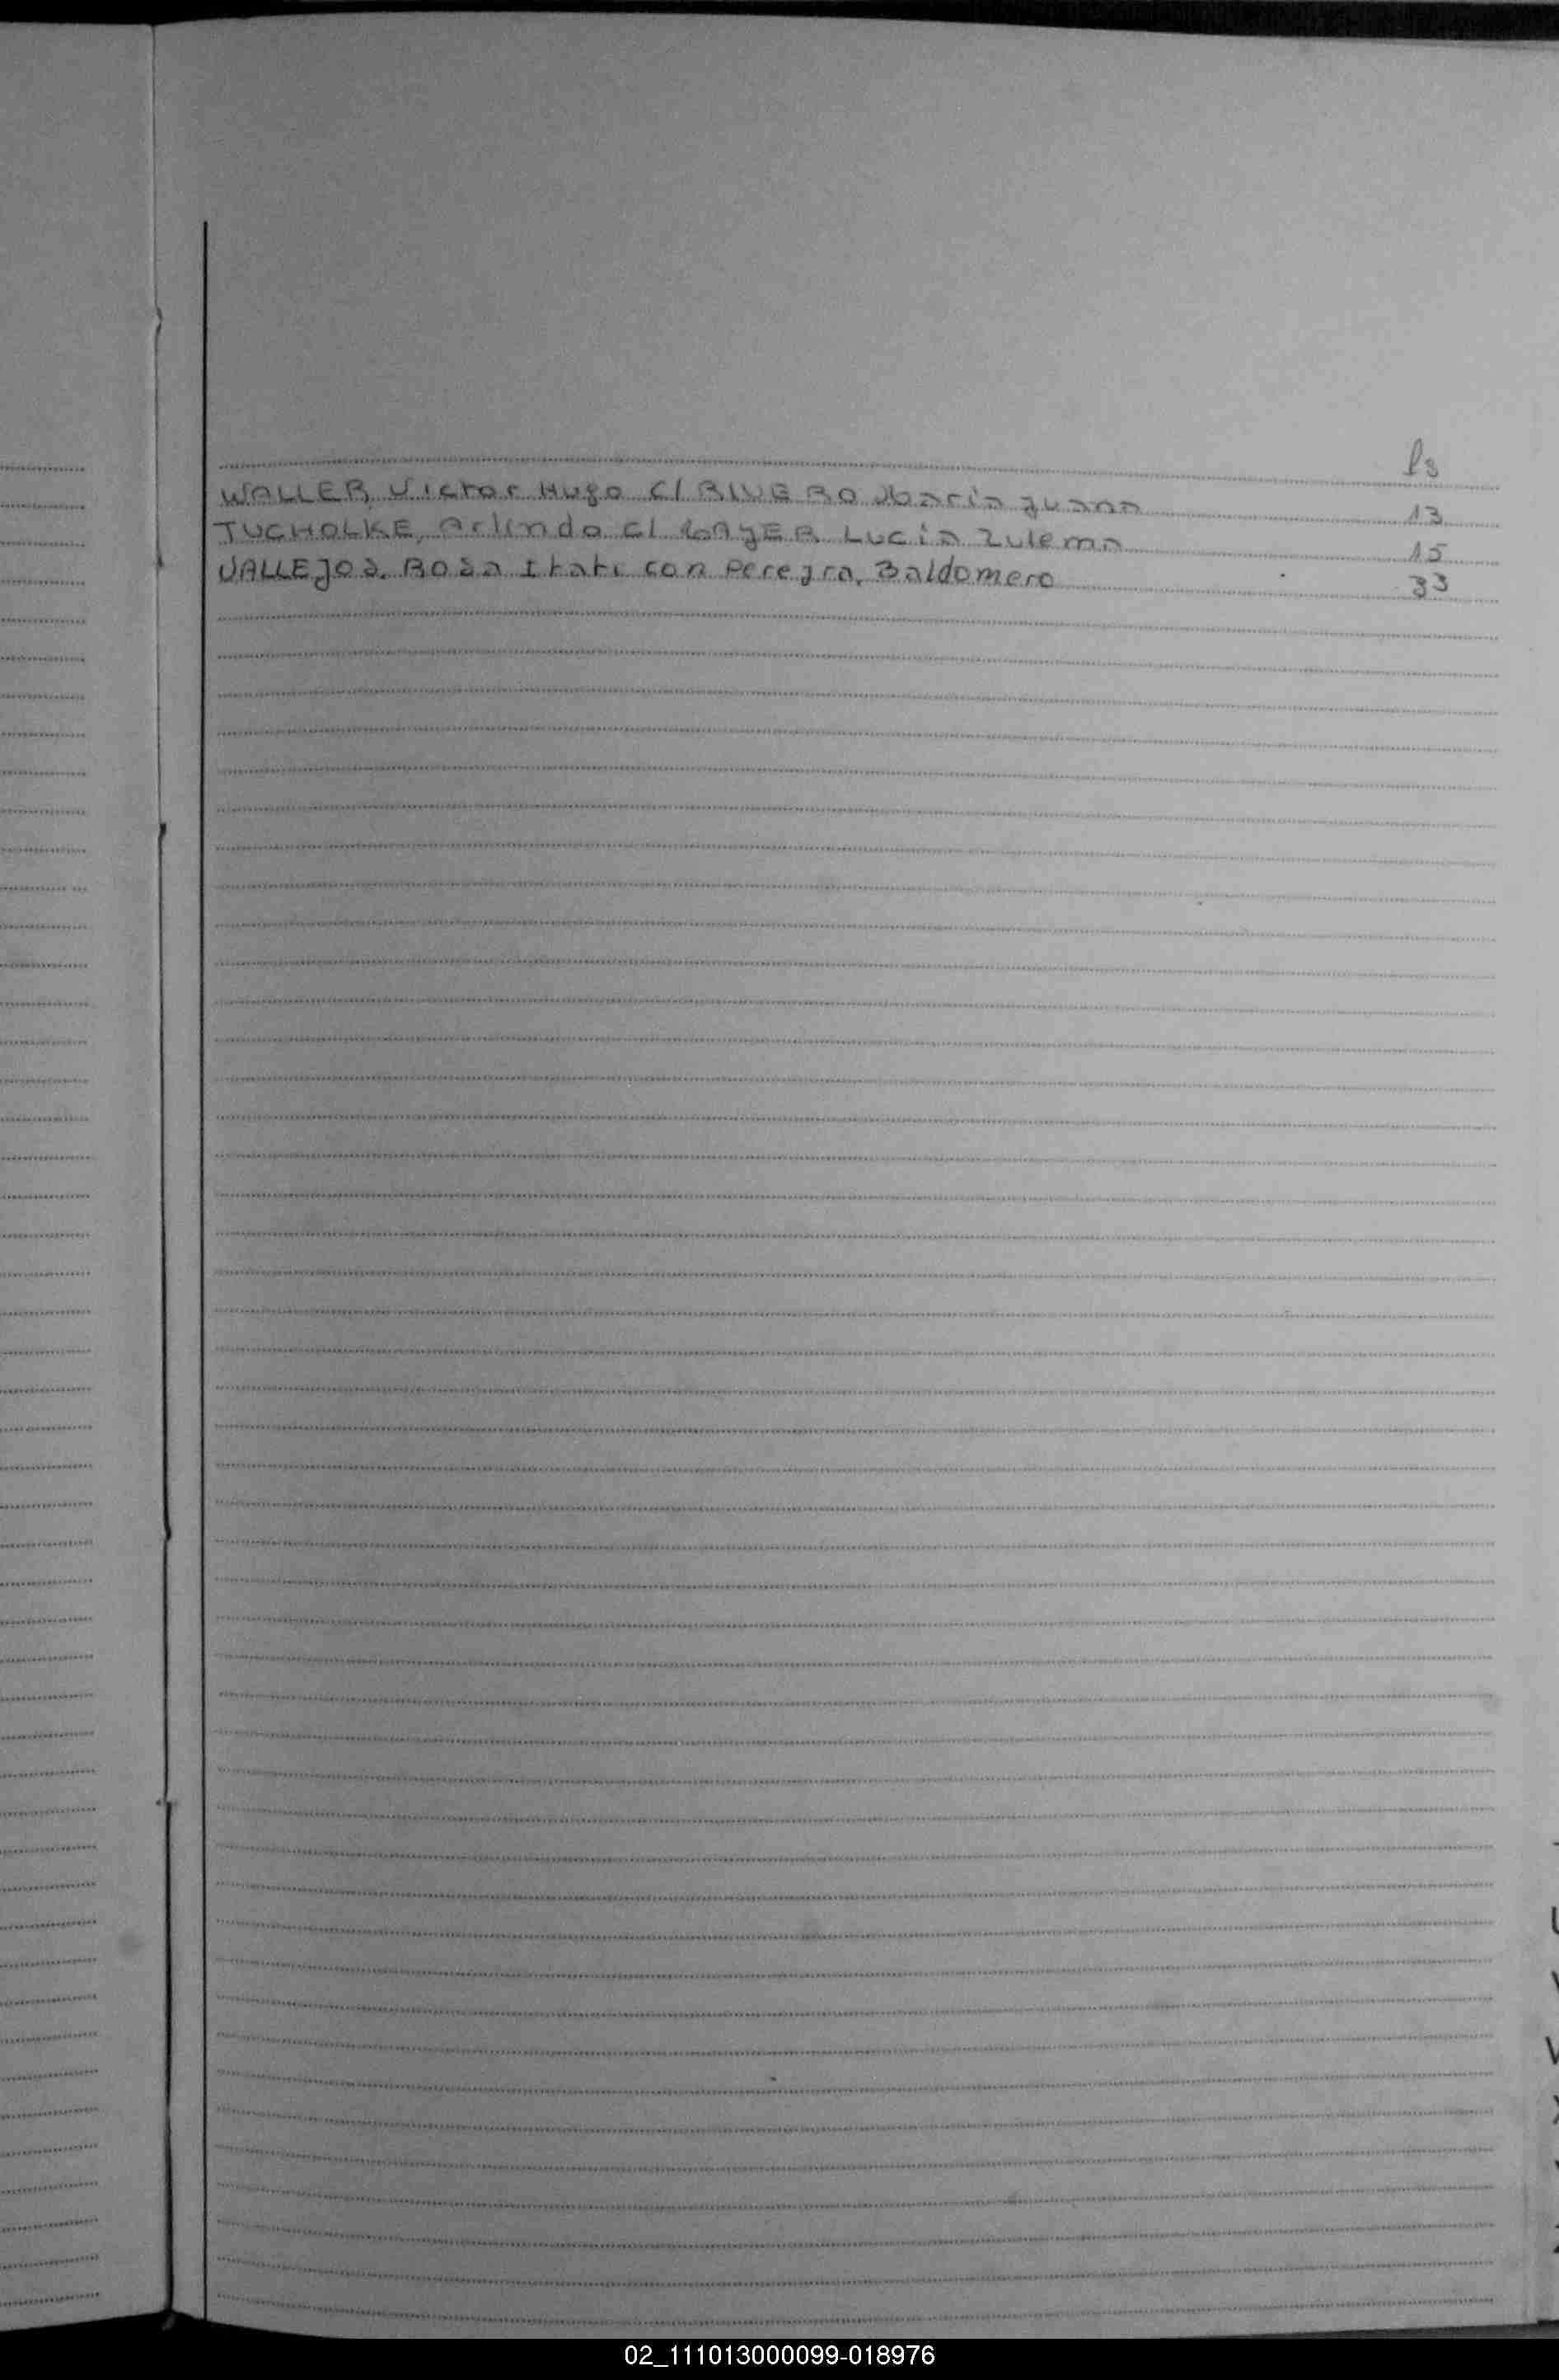 fs
WALLER, Victor Hugo C/ RIVERO María Juana 13
TUCHOLKE, Arlindo C/ BAYER Lucía Zulema 15
VALLEJOS, Rosa Itati con Pereira, Baldomero 33
02_111013000099-018976